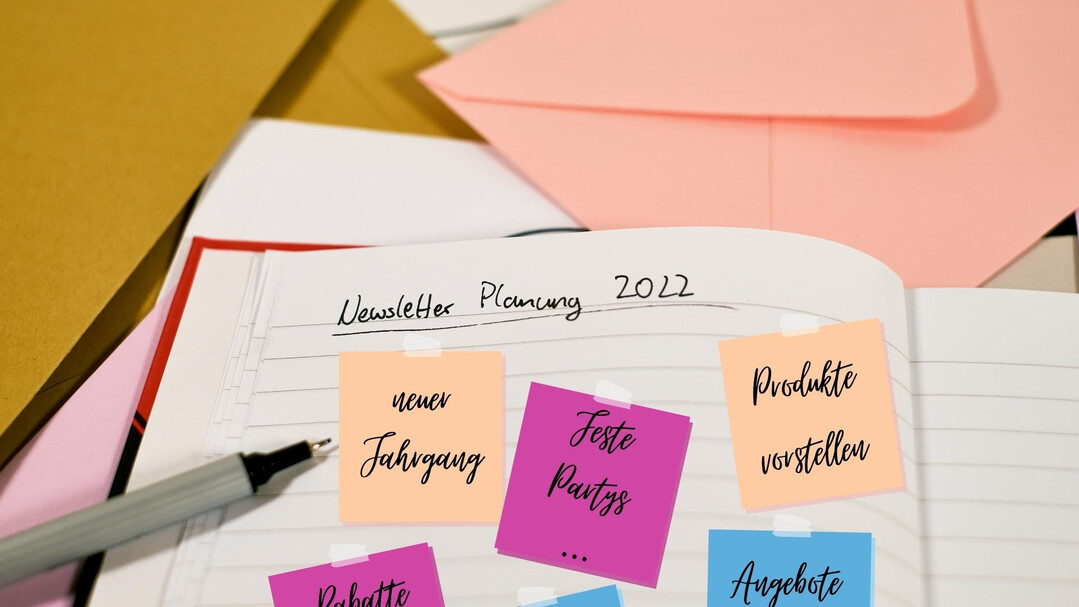 Newsletter Planung 2022
neuer
Jahrgang
Feste
Partys
...
Produkte
vorstellen
Rabatte
Angebote